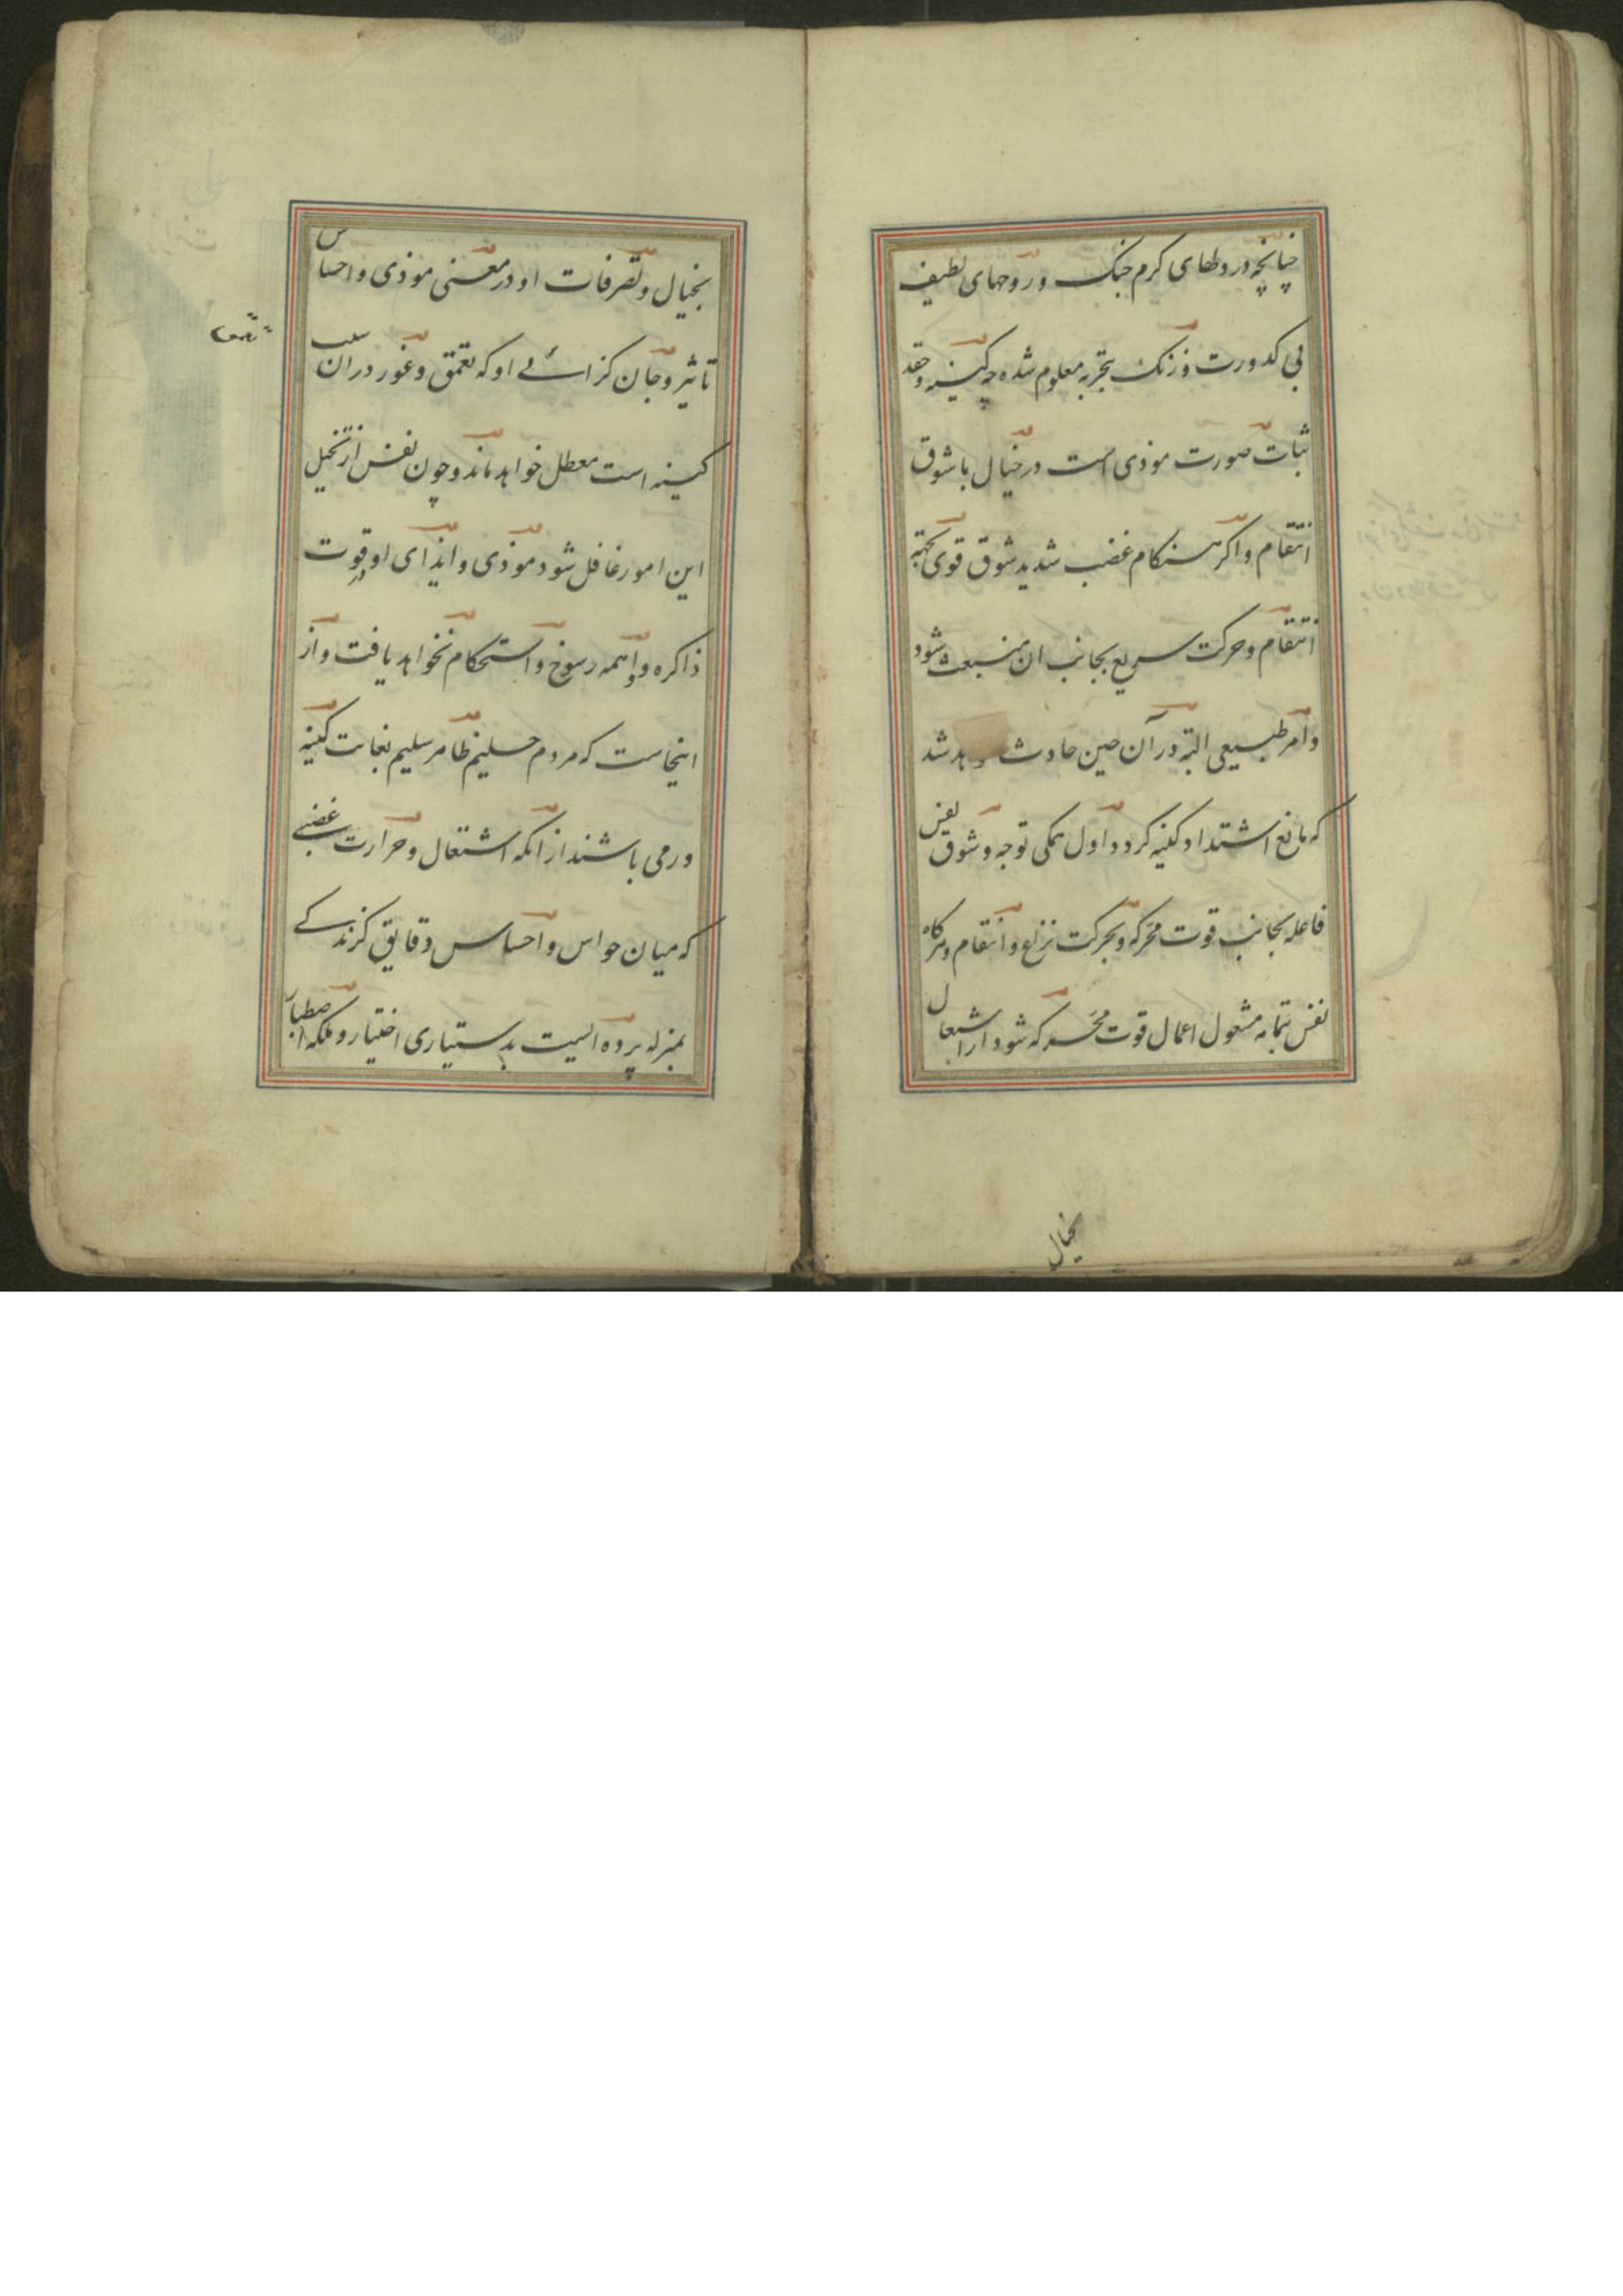 چنانچه در دلهای کرم خنک و روحهای لطیف
بی کدورت و زنک بتجربه معلوم شده چه کینه و حقد
ثبات صورت موذی است در خیال با شوق
انتقام و اکر هنکام غضب شدید شوق قوی بجهة
انتقام و حرکت سریع بجانب ان منبعث شود
و امر طبیعی البته در آن حین حادث هد شد
که مانع اشتداد کینه کردد اول همکی توجه و شوق نفس
فاعله بجانب قوت محرکه و بحرکت نزاع و انتقام و هرکاه
نفس بتمامه مشغول اعمال قوت محرکه شود از اشتعال
بخیال
بخیال و تصرفات او در معنی موذی و احساس
تاثیر و جان کزائی او که تعمق و غور در ان سبب
کینه است معطل خواهد ماند و چون نفس از تخیل
این امور غافل شود موذی و ایذای او در قوت
ذاکره و واهمه رسوخ و استحکام نخواهد یافت و از
اینجاست که مردم حلیم ظاهر سلیم بغایت کینه
ور می باشند از انکه اشتعال و حرارت غضبی
که میان حواس و احساس دقایق کزندکی
بمنزله پرده الیست بدستیاری اختیار و ملکه اصطبار